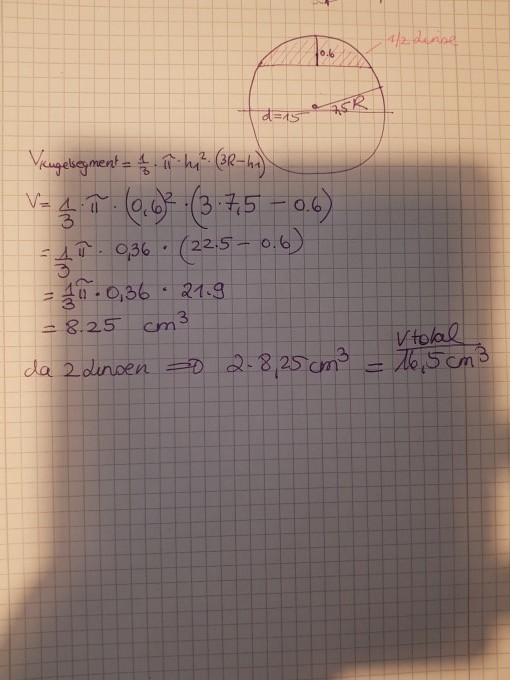 1/2 Linse
0.6
d=15 7,5 R
VKugelsegment = 1/3 · π · h1² · (3R - h1)
V = 1/3 · π · (0,6)² · (3 · 7,5 - 0.6)
= 1/3 π · 0,36 · (22.5 - 0.6)
= 1/3 π · 0,36 · 21.9
= 8.25 cm³
da 2 Linsen ⇒ 2 · 8,25 cm³ = 16,5 cm³
V total